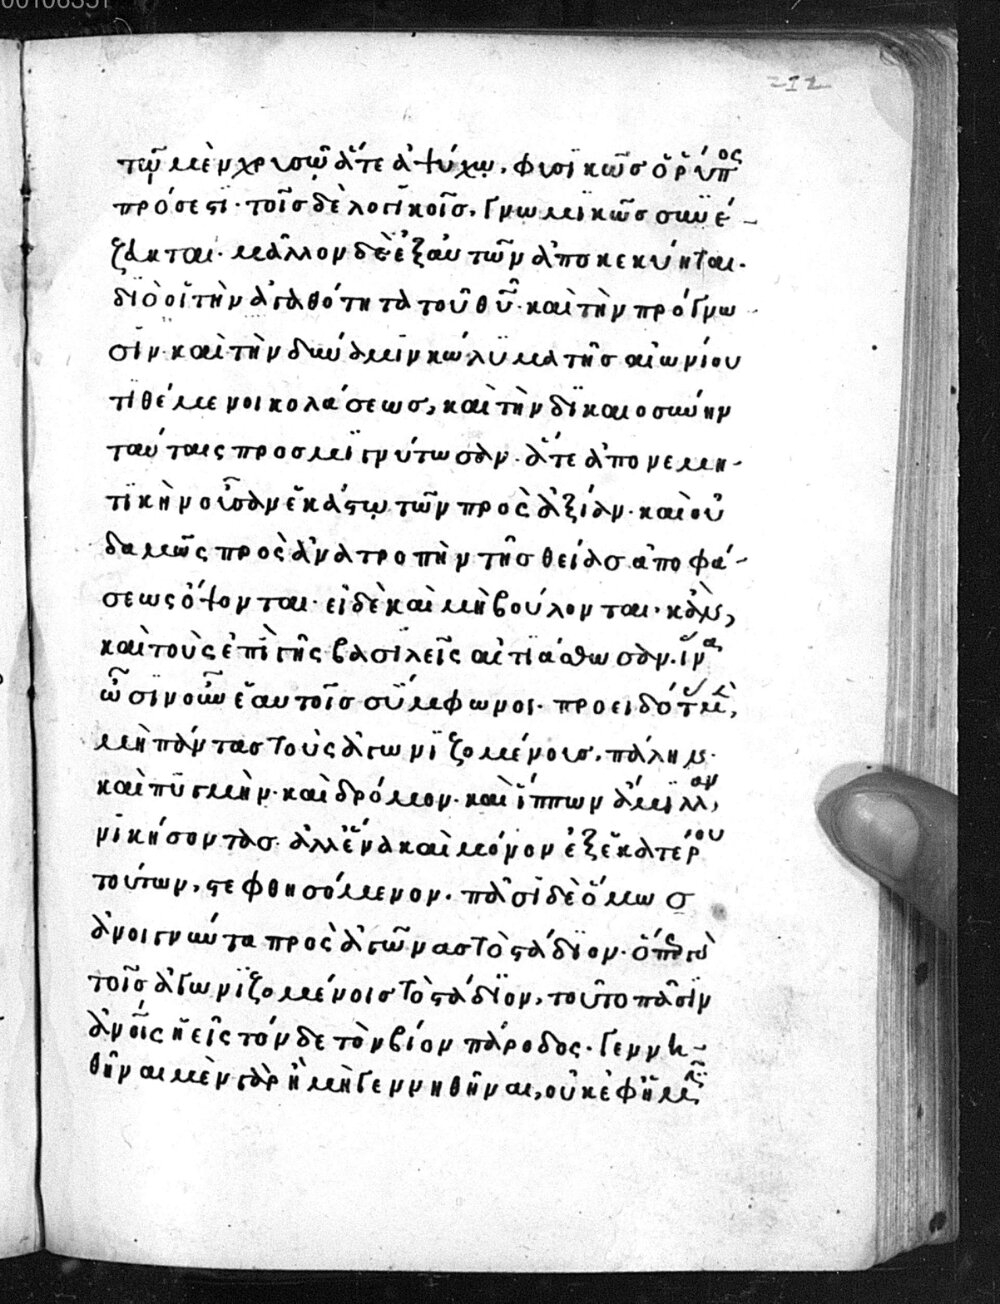 00106351
212
τῷ μὲν χρυσῷ ἅτε ἀψύχῳ. φυσικῶς ὁ ῥύπος
πρόσεστι· τοῖς δὲ λογικοῖς. γνωμικῶς συνέ-
ζευκται· μᾶλλον δὲ ἐξ αὐτῶν ἀποκεκύηται.
διὸ οἱ τὴν ἀγαθότητα τοῦ θῦ· καὶ τὴν πρόγνω
σιν· καὶ τὴν δύναμιν κώλυμα τῆς αἰωνίου
τιθέμενοι κολάσεως, καὶ τὴν δικαιοσύνην
ταύταις προσμιγνύτωσαν. ἅτε ἀπονεμη-
τικὴν οὖσαν ἑκάστῳ τῶν πρὸς ἀξίαν. καὶ οὐ
δαμῶς πρὸς ἀνατροπὴν τῆς θείας ἀποφά-
σεως ὄψονται· εἰ δὲ καὶ μὴ βούλονται.
καὶ τοὺς ἐπὶ γῆς βασιλεῖς αἰτιάσθωσαν. ἵνα
ὦσιν οὖν ἑαυτοῖς σύμφωνοι.
μὴ πάντας τοὺς ἀγωνιζομένους. πάλην
καὶ πυγμὴν· καὶ δρόμον· καὶ ἵππων ἅμιλλαν,
νικήσοντας. ἀλλ' ἕνα καὶ μόνον ἐξ ἑκατέρου
τούτων, στεφθησόμενον. πᾶσι δὲ ὅμως
ἀνοίγνυται πρὸς ἀγῶνας τὸ στάδιον.
τοῖς ἀγωνιζομένοις τὸ στάδιον, τοῦτο πᾶσιν
ἀνοις ἡ εἰς τόνδε τὸν βίον πάροδος. γεννη-
θῆναι μὲν γὰρ ἢ μὴ γεννηθῆναι, οὐκ ἐφ' ἡμῖν